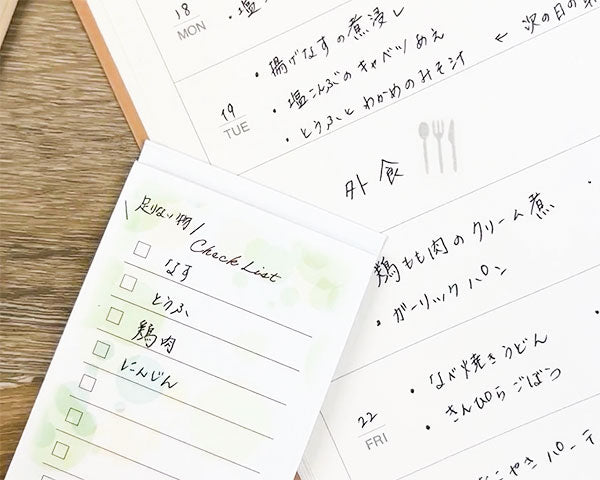 18
MON
・塩
・揚げなすの煮浸し
19
TUE
・塩こんぶのキャベツあえ
・とうふとわかめのみそ汁
← 次の日の
外食
鶏もも肉のクリーム煮
・ガーリックパン
22
FRI
・なべ焼きうどん
・きんぴらごぼう
やきパーテ
\足りない物/
Check List
なす
とうふ
鶏肉
にんじん